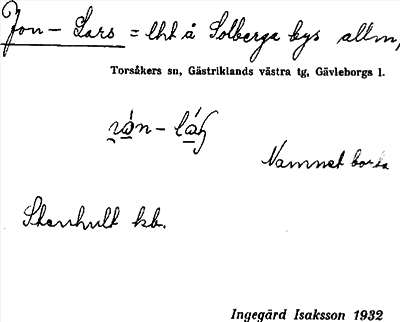 Jon-Lars = lht å Solberga bys allm,
Torsåkers sn, Gästriklands västra tg, Gävleborgs l.
Namnet borta
Stenhult kb.
Ingegärd Isaksson 1932